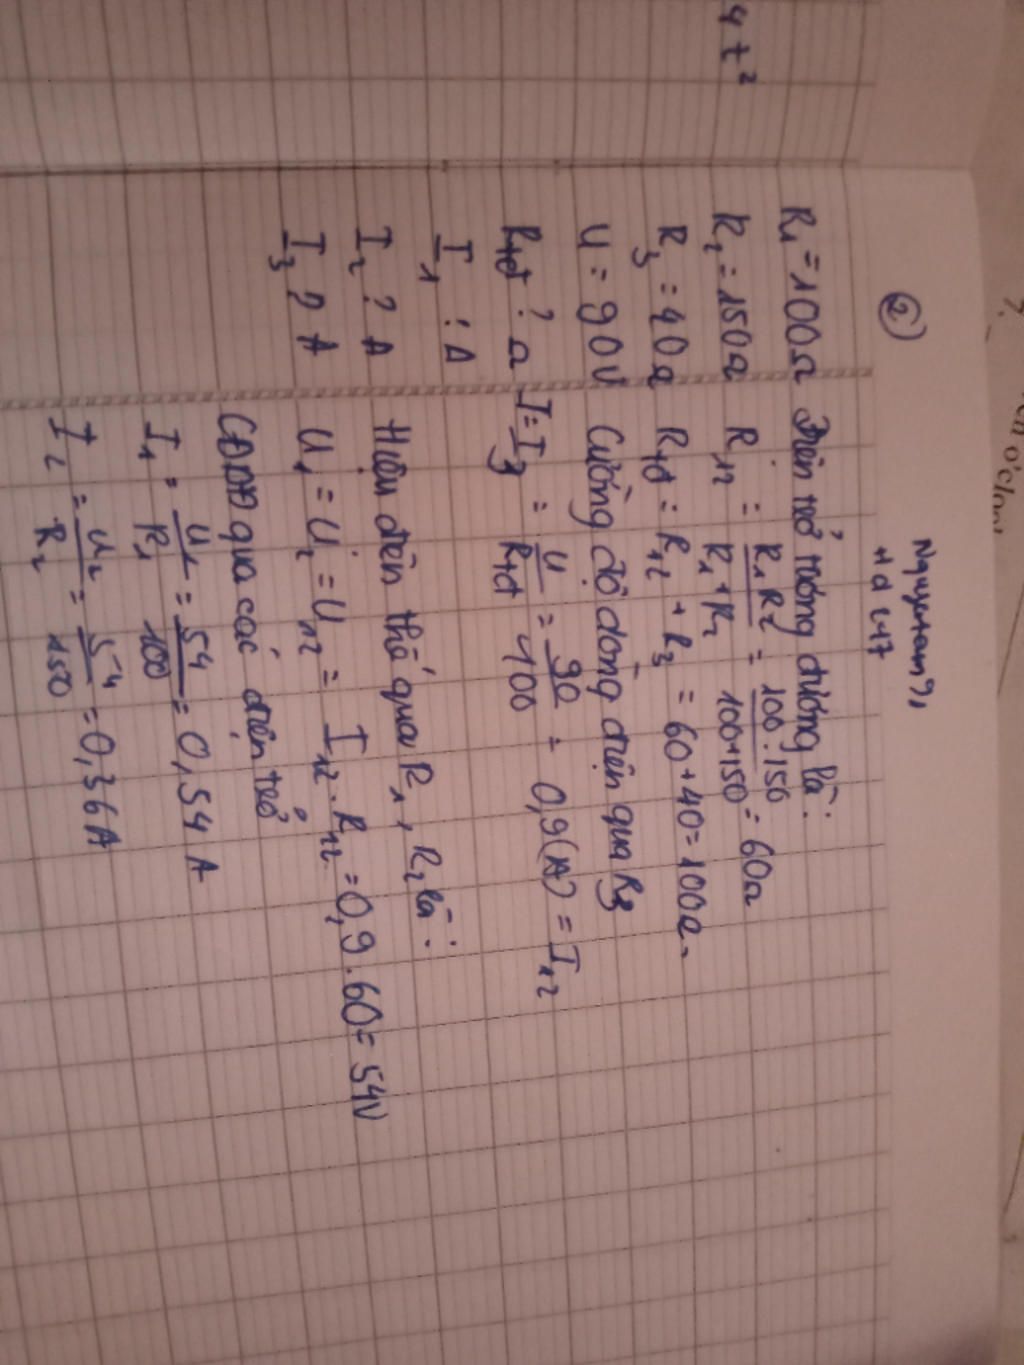 4 t²
②
R₁ = 100Ω
R₂ = 150Ω
R₃ = 40Ω
U = 90V
Rtđ ? Ω
I₁ : A
I₂ ? A
I₃ ? A
Điện trở tương đương là:
R₁₂ = R₁R₂ / R₁+R₂ = 100.150 / 100+150 = 60Ω
Rtđ = R₁₂ + R₃ = 60+40 = 100Ω
Cường độ dòng điện qua R₃
I = I₃ = U / Rtđ = 90 / 100 = 0,9(A) = I₁₂
Hiệu điện thế qua R₁, R₂ là:
U₁ = U₂ = U₁₂ = I₁₂.R₁₂ = 0,9.60 = 54V
CĐDĐ qua các điện trở
I₁ = U₁ / R₁ = 54 / 100 = 0,54 A
I₂ = U₂ / R₂ = 54 / 150 = 0,36A